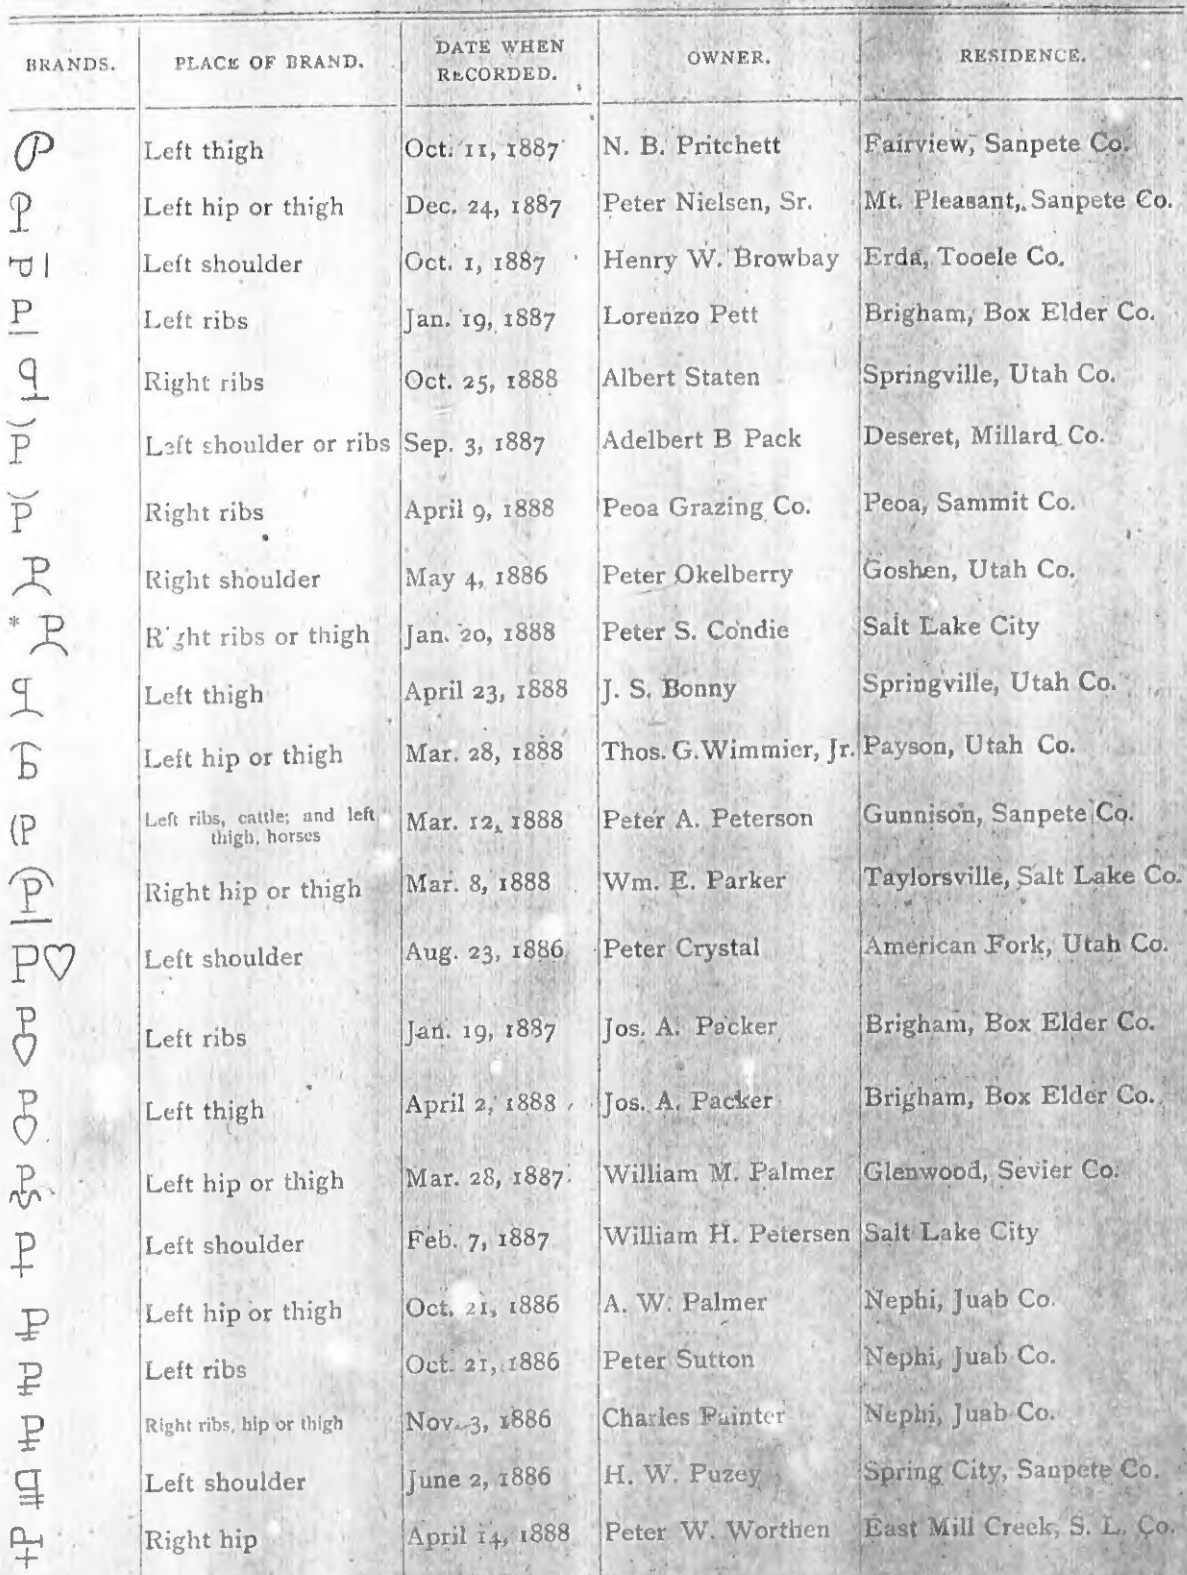 BRANDS. PLACE OF BRAND. DATE WHEN RECORDED. OWNER. RESIDENCE.
P Left thigh Oct. 11, 1887 N. B. Pritchett Fairview, Sanpete Co.
P Left hip or thigh Dec. 24, 1887 Peter Nielsen, Sr. Mt. Pleasant, Sanpete Co.
Left shoulder Oct. 1, 1887 Henry W. Browbay Erda, Tooele Co.
P Left ribs Jan. 19, 1887 Lorenzo Pett Brigham, Box Elder Co.
Right ribs Oct. 25, 1888 Albert Staten Springville, Utah Co.
P Left shoulder or ribs Sep. 3, 1887 Adelbert B Pack Deseret, Millard Co.
P Right ribs April 9, 1888 Peoa Grazing Co. Peoa, Sammit Co.
P Right shoulder May 4, 1886 Peter Okelberry Goshen, Utah Co.
* P Right ribs or thigh Jan. 20, 1888 Peter S. Condie Salt Lake City
Left thigh April 23, 1888 J. S. Bonny Springville, Utah Co.
Left hip or thigh Mar. 28, 1888 Thos. G. Wimmier, Jr. Payson, Utah Co.
(P Left ribs, cattle; and left thigh, horses Mar. 12, 1888 Peter A. Peterson Gunnison, Sanpete Co.
P Right hip or thigh Mar. 8, 1888 Wm. E. Parker Taylorsville, Salt Lake Co.
P♡ Left shoulder Aug. 23, 1886 Peter Crystal American Fork, Utah Co.
P Left ribs Jan. 19, 1887 Jos. A. Packer Brigham, Box Elder Co.
P Left thigh April 2, 1888 Jos. A. Packer Brigham, Box Elder Co.
P Left hip or thigh Mar. 28, 1887 William M. Palmer Glenwood, Sevier Co.
P Left shoulder Feb. 7, 1887 William H. Petersen Salt Lake City
P Left hip or thigh Oct. 21, 1886 A. W. Palmer Nephi, Juab Co.
Left ribs Oct. 21, 1886 Peter Sutton Nephi, Juab Co.
P Right ribs, hip or thigh Nov. 3, 1886 Charles Painter Nephi, Juab Co.
Left shoulder June 2, 1886 H. W. Puzey Spring City, Sanpete Co.
Right hip April 14, 1888 Peter W. Worthen East Mill Creek, S. L. Co.